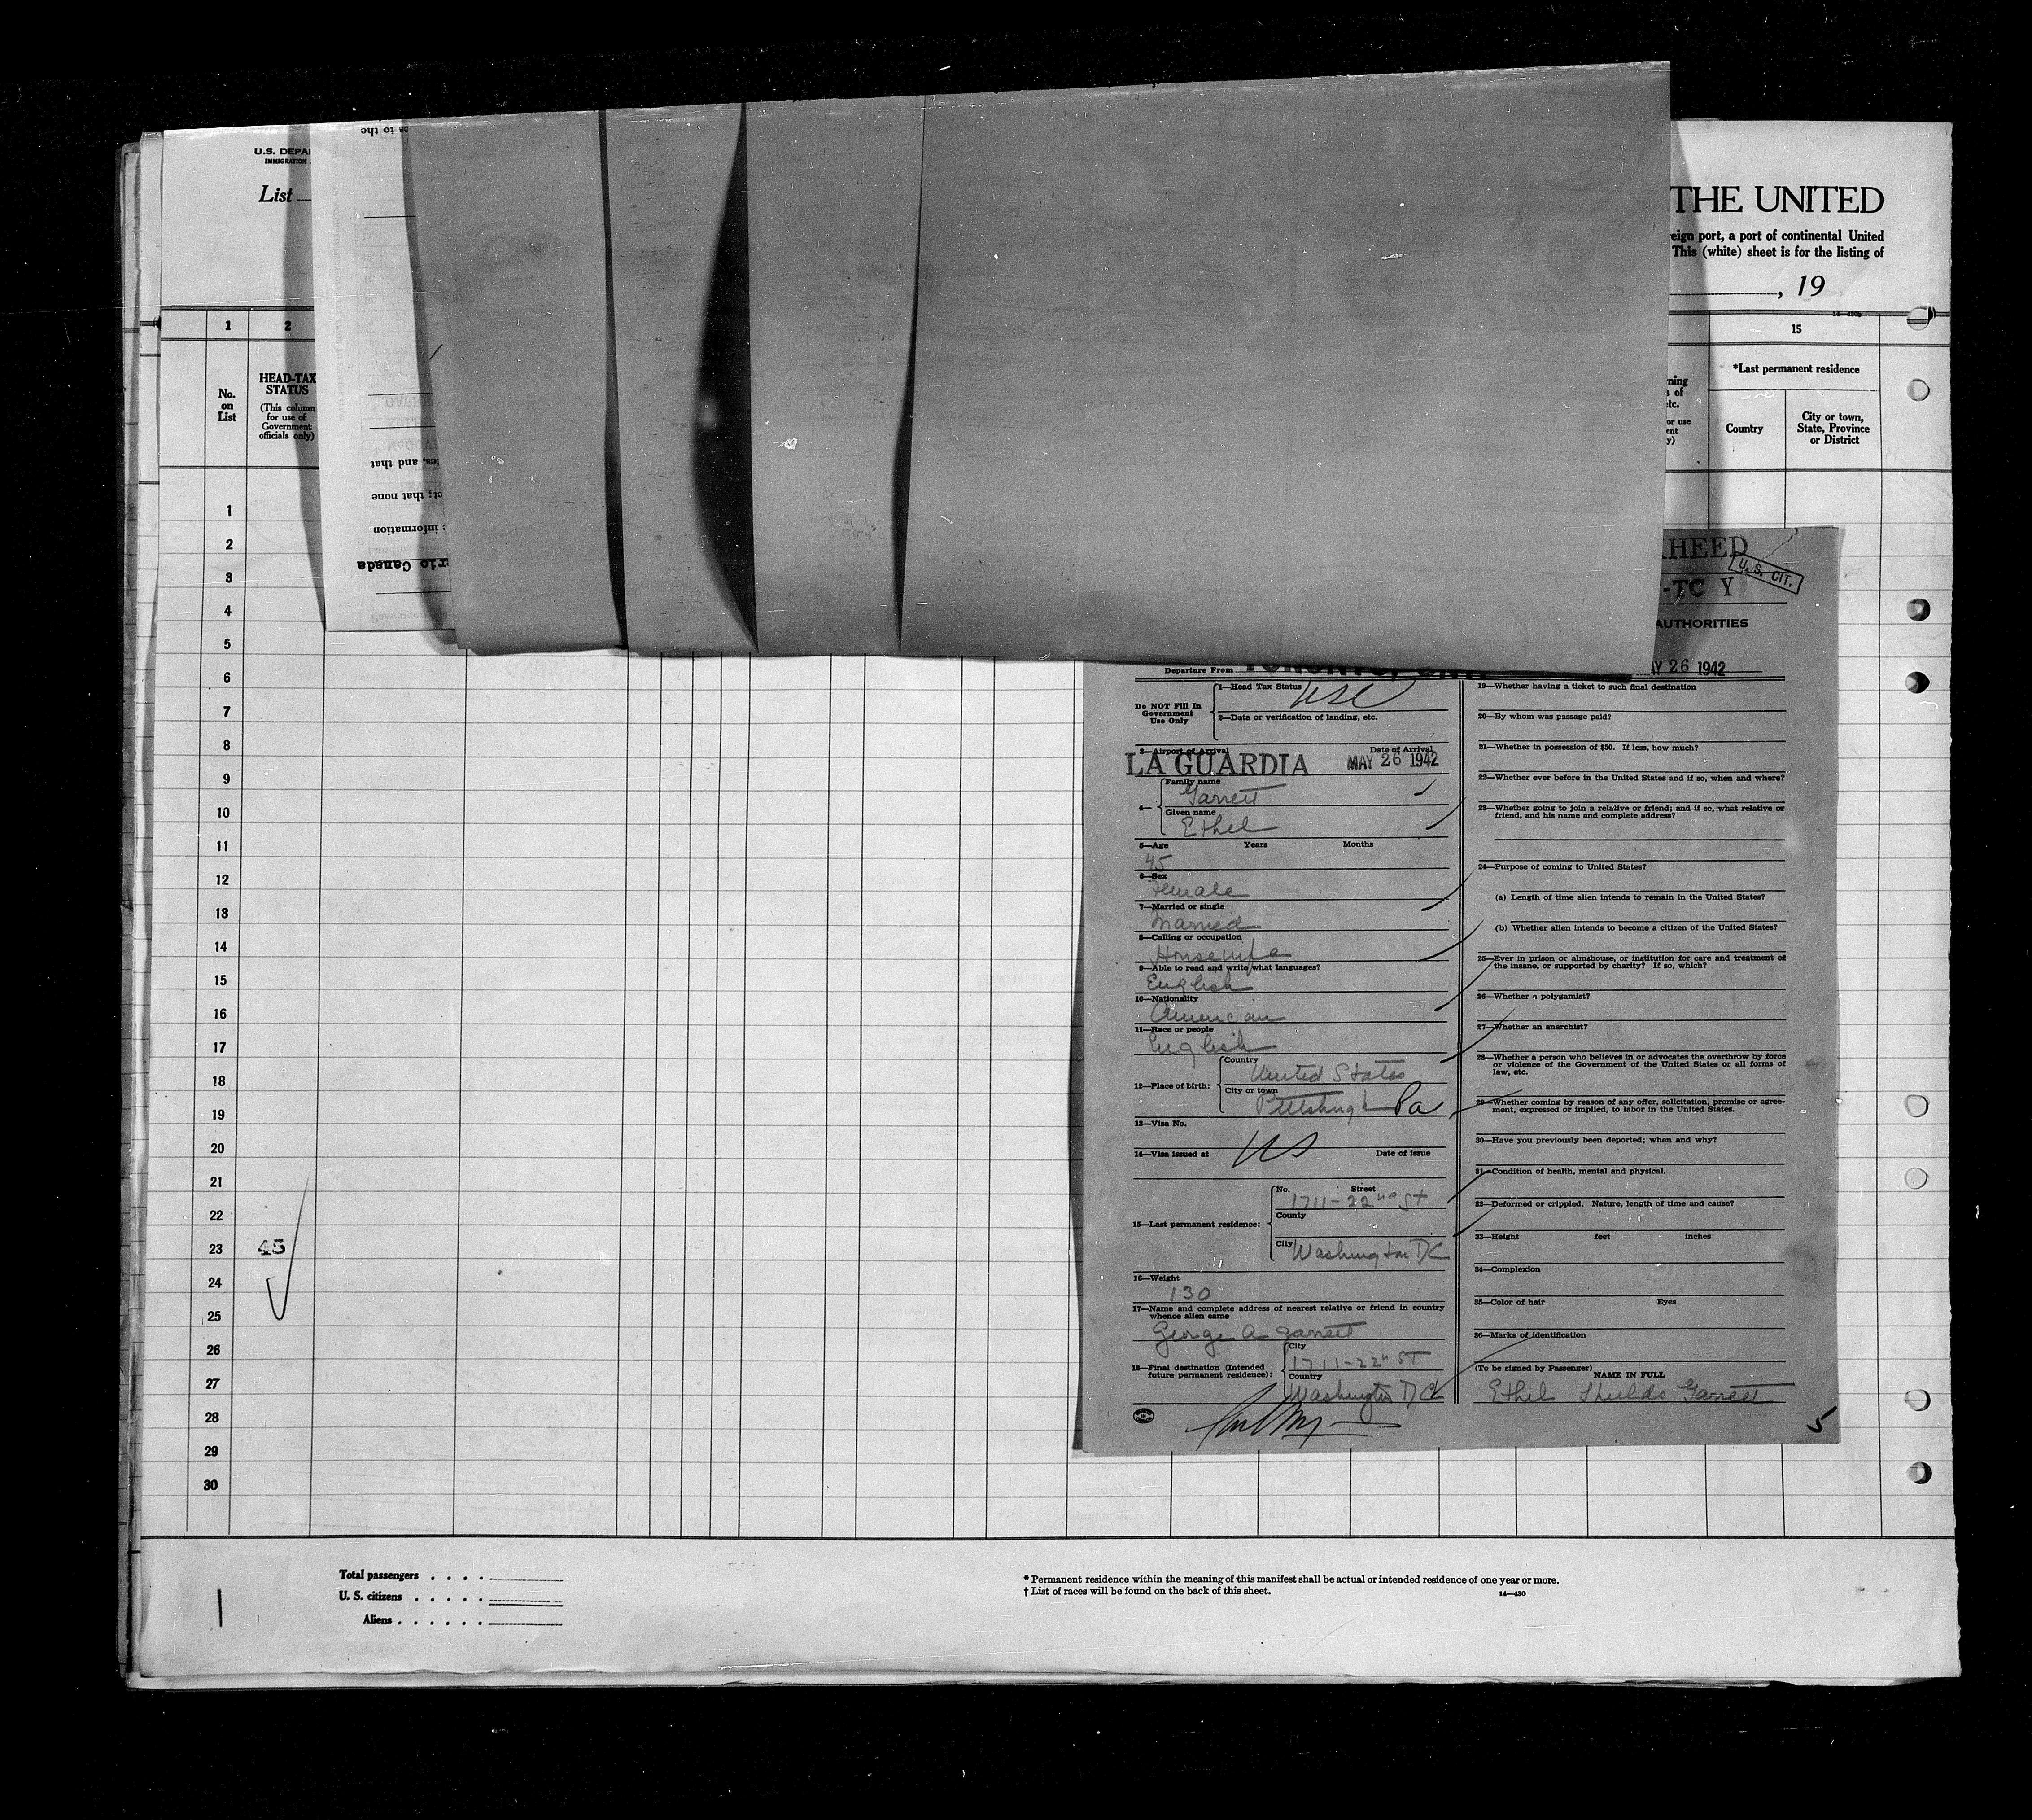 U.S. DEPA
IMMIGRATION
List
THE UNITED
eign port, a port of continental United
This (white) sheet is for the listing of
, 19
1
2
15
No. on List
HEAD-TAX STATUS
(This column for use of Government officials only)
*Last permanent residence
Country
City or town, State, Province or District
s to the
es, and that
ct; that none
information
rio Canada
ning
s of
etc.
or use
ent
y)
1
2
3
4
5
6
7
8
9
10
11
12
13
14
15
16
17
18
19
20
21
22
23
45
24
25
26
27
28
29
30
HEED
U. S. CIT.
-TC Y
AUTHORITIES
Departure From TORONTO, ONT.
AY 26 1942
Do NOT Fill In Government Use Only
1—Head Tax Status USC
2—Data or verification of landing, etc.
3—Airport of Arrival Date of Arrival
LA GUARDIA MAY 26 1942
4—
Family name
Garrett
Given name
Ethel
5—Age Years Months
45
6—Sex
Female
7—Married or single
Married
8—Calling or occupation
Housewife
9—Able to read and write what languages?
English
10—Nationality
American
11—Race or people
English
12—Place of birth:
Country
United States
City or town
Pittsburgh Pa
13—Visa No.
US
14—Visa issued at Date of issue
15—Last permanent residence:
No. Street
1711-22nd St
County
City Washington DC
16—Weight
130
17—Name and complete address of nearest relative or friend in country
whence alien came
George A Garrett
18—Final destination (Intended
future permanent residence):
City
1711-22n ST
Country
Washington DC
19—Whether having a ticket to such final destination
20—By whom was passage paid?
21—Whether in possession of $50. If less, how much?
22—Whether ever before in the United States and if so, when and where?
23—Whether going to join a relative or friend; and if so, what relative or
friend, and his name and complete address?
24—Purpose of coming to United States?
(a) Length of time alien intends to remain in the United States?
(b) Whether alien intends to become a citizen of the United States?
25—Ever in prison or almshouse, or institution for care and treatment of
the insane, or supported by charity? If so, which?
26—Whether a polygamist?
27—Whether an anarchist?
28—Whether a person who believes in or advocates the overthrow by force
or violence of the Government of the United States or all forms of
law, etc.
29—Whether coming by reason of any offer, solicitation, promise or agree-
ment, expressed or implied, to labor in the United States.
30—Have you previously been deported; when and why?
31—Condition of health, mental and physical.
32—Deformed or crippled. Nature, length of time and cause?
33—Height feet inches
34—Complexion
35—Color of hair Eyes
36—Marks of identification
(To be signed by Passenger)
NAME IN FULL
Ethel Shields Garrett
5
Total passengers . . . .
U. S. citizens . . . . .
Aliens . . . . . .
* Permanent residence within the meaning of this manifest shall be actual or intended residence of one year or more.
† List of races will be found on the back of this sheet.
14—430